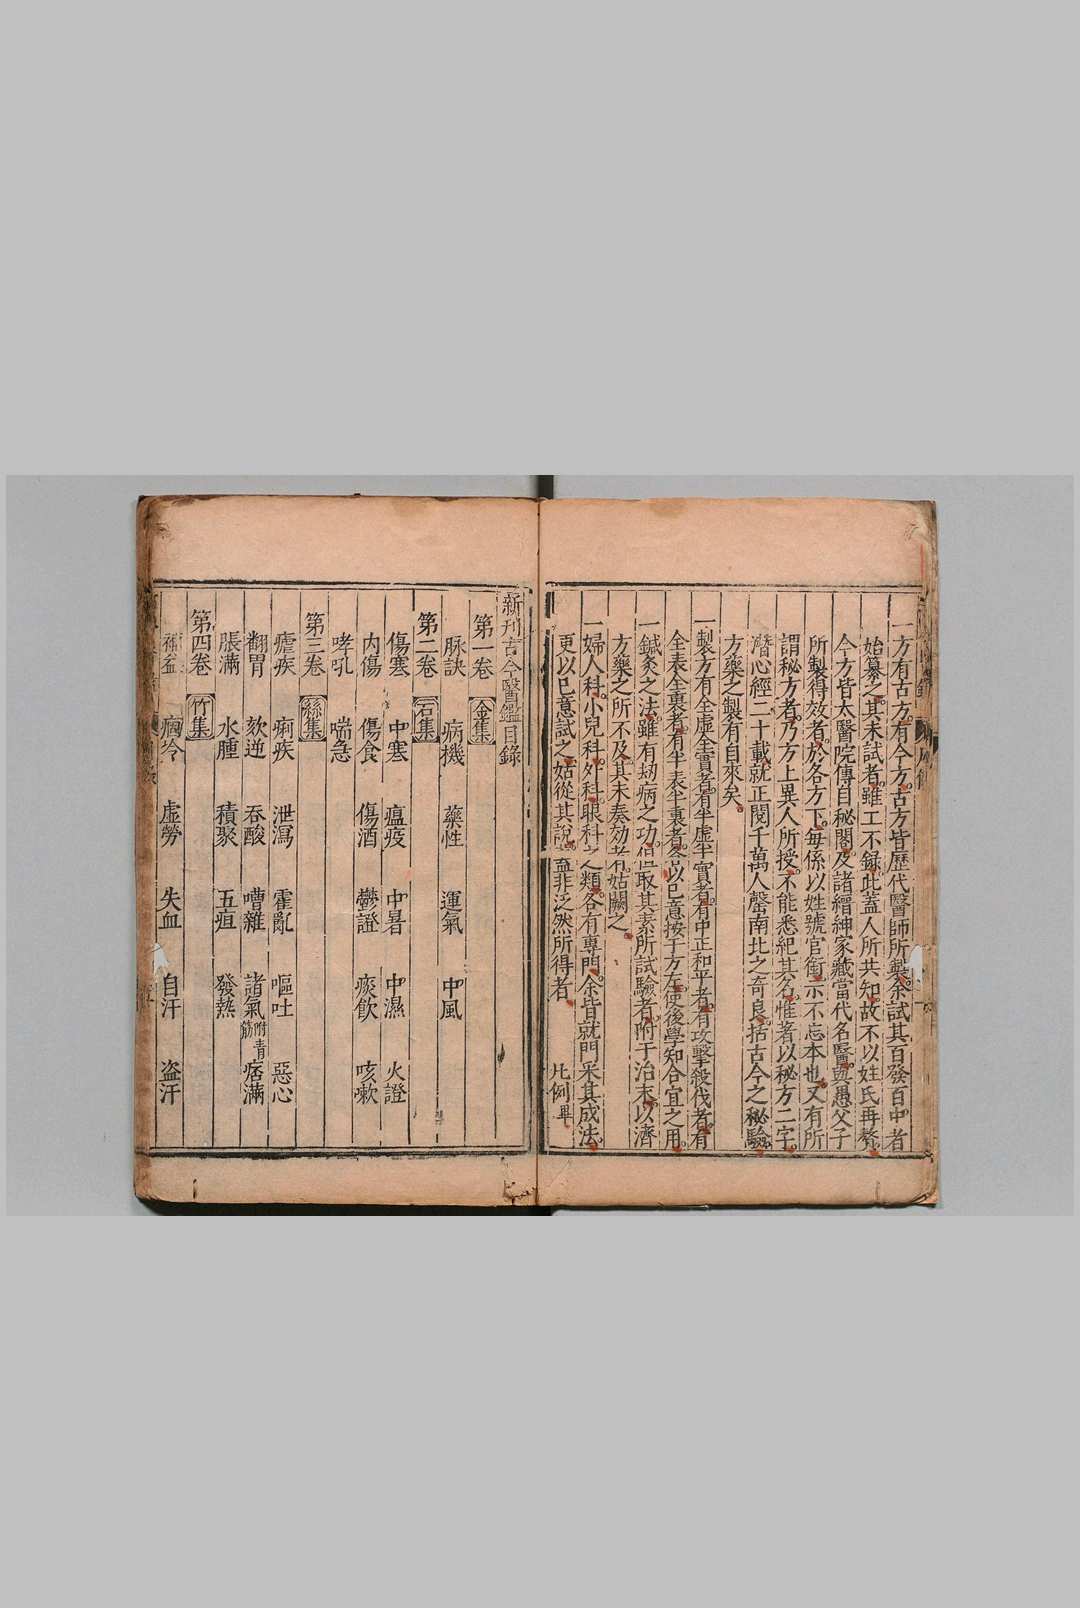 一方有古方有今方古方皆歷代醫師所製余試其百發百中者
始纂之其未試者雖工不錄此蓋人所共知故不以姓氏再贅
今方皆太醫院傳自秘閣及諸縉紳家藏當代名醫與愚父子
所製得效者於各方下每係以姓號官銜示不忘本也又有所
謂秘方者乃方上異人所授不能悉紀其名惟著以秘方二字
潛心經二十載就正閱千萬人罄南北之奇良括古今之秘驗
方藥之製有自來矣
一製方有全虛全實者有半虛半實者有中正和平者有攻擊殺伐者有
全表全裏者有半表半裏者各以已意按于方左使後學知合宜之用
一鍼灸之法雖有刼病之功但取其素所試驗者附于治末以濟
方藥之所不及其未奏効者姑闕之
一婦人科小兒科外科眼科之類各有專門余皆就門采其成法
更以已意試之姑從其說蓋非泛然所得者 凡例畢
新刊古今醫鑑目錄
第一卷 金集
脉訣 病機 藥性 運氣 中風
第二卷 石集
傷寒 中寒 瘟疫 中暑 中濕 火證
內傷 傷食 傷酒 鬱證 痰飲 咳嗽
哮吼 喘急
第三卷 絲集
瘧疾 痢疾 泄瀉 霍亂 嘔吐 惡心
翻胃 欬逆 吞酸 嘈雜 諸氣附青筋 痞滿
脹滿 水腫 積聚 五疸 發熱
第四卷 竹集
補益 痼冷 虛勞 失血 自汗 盜汗